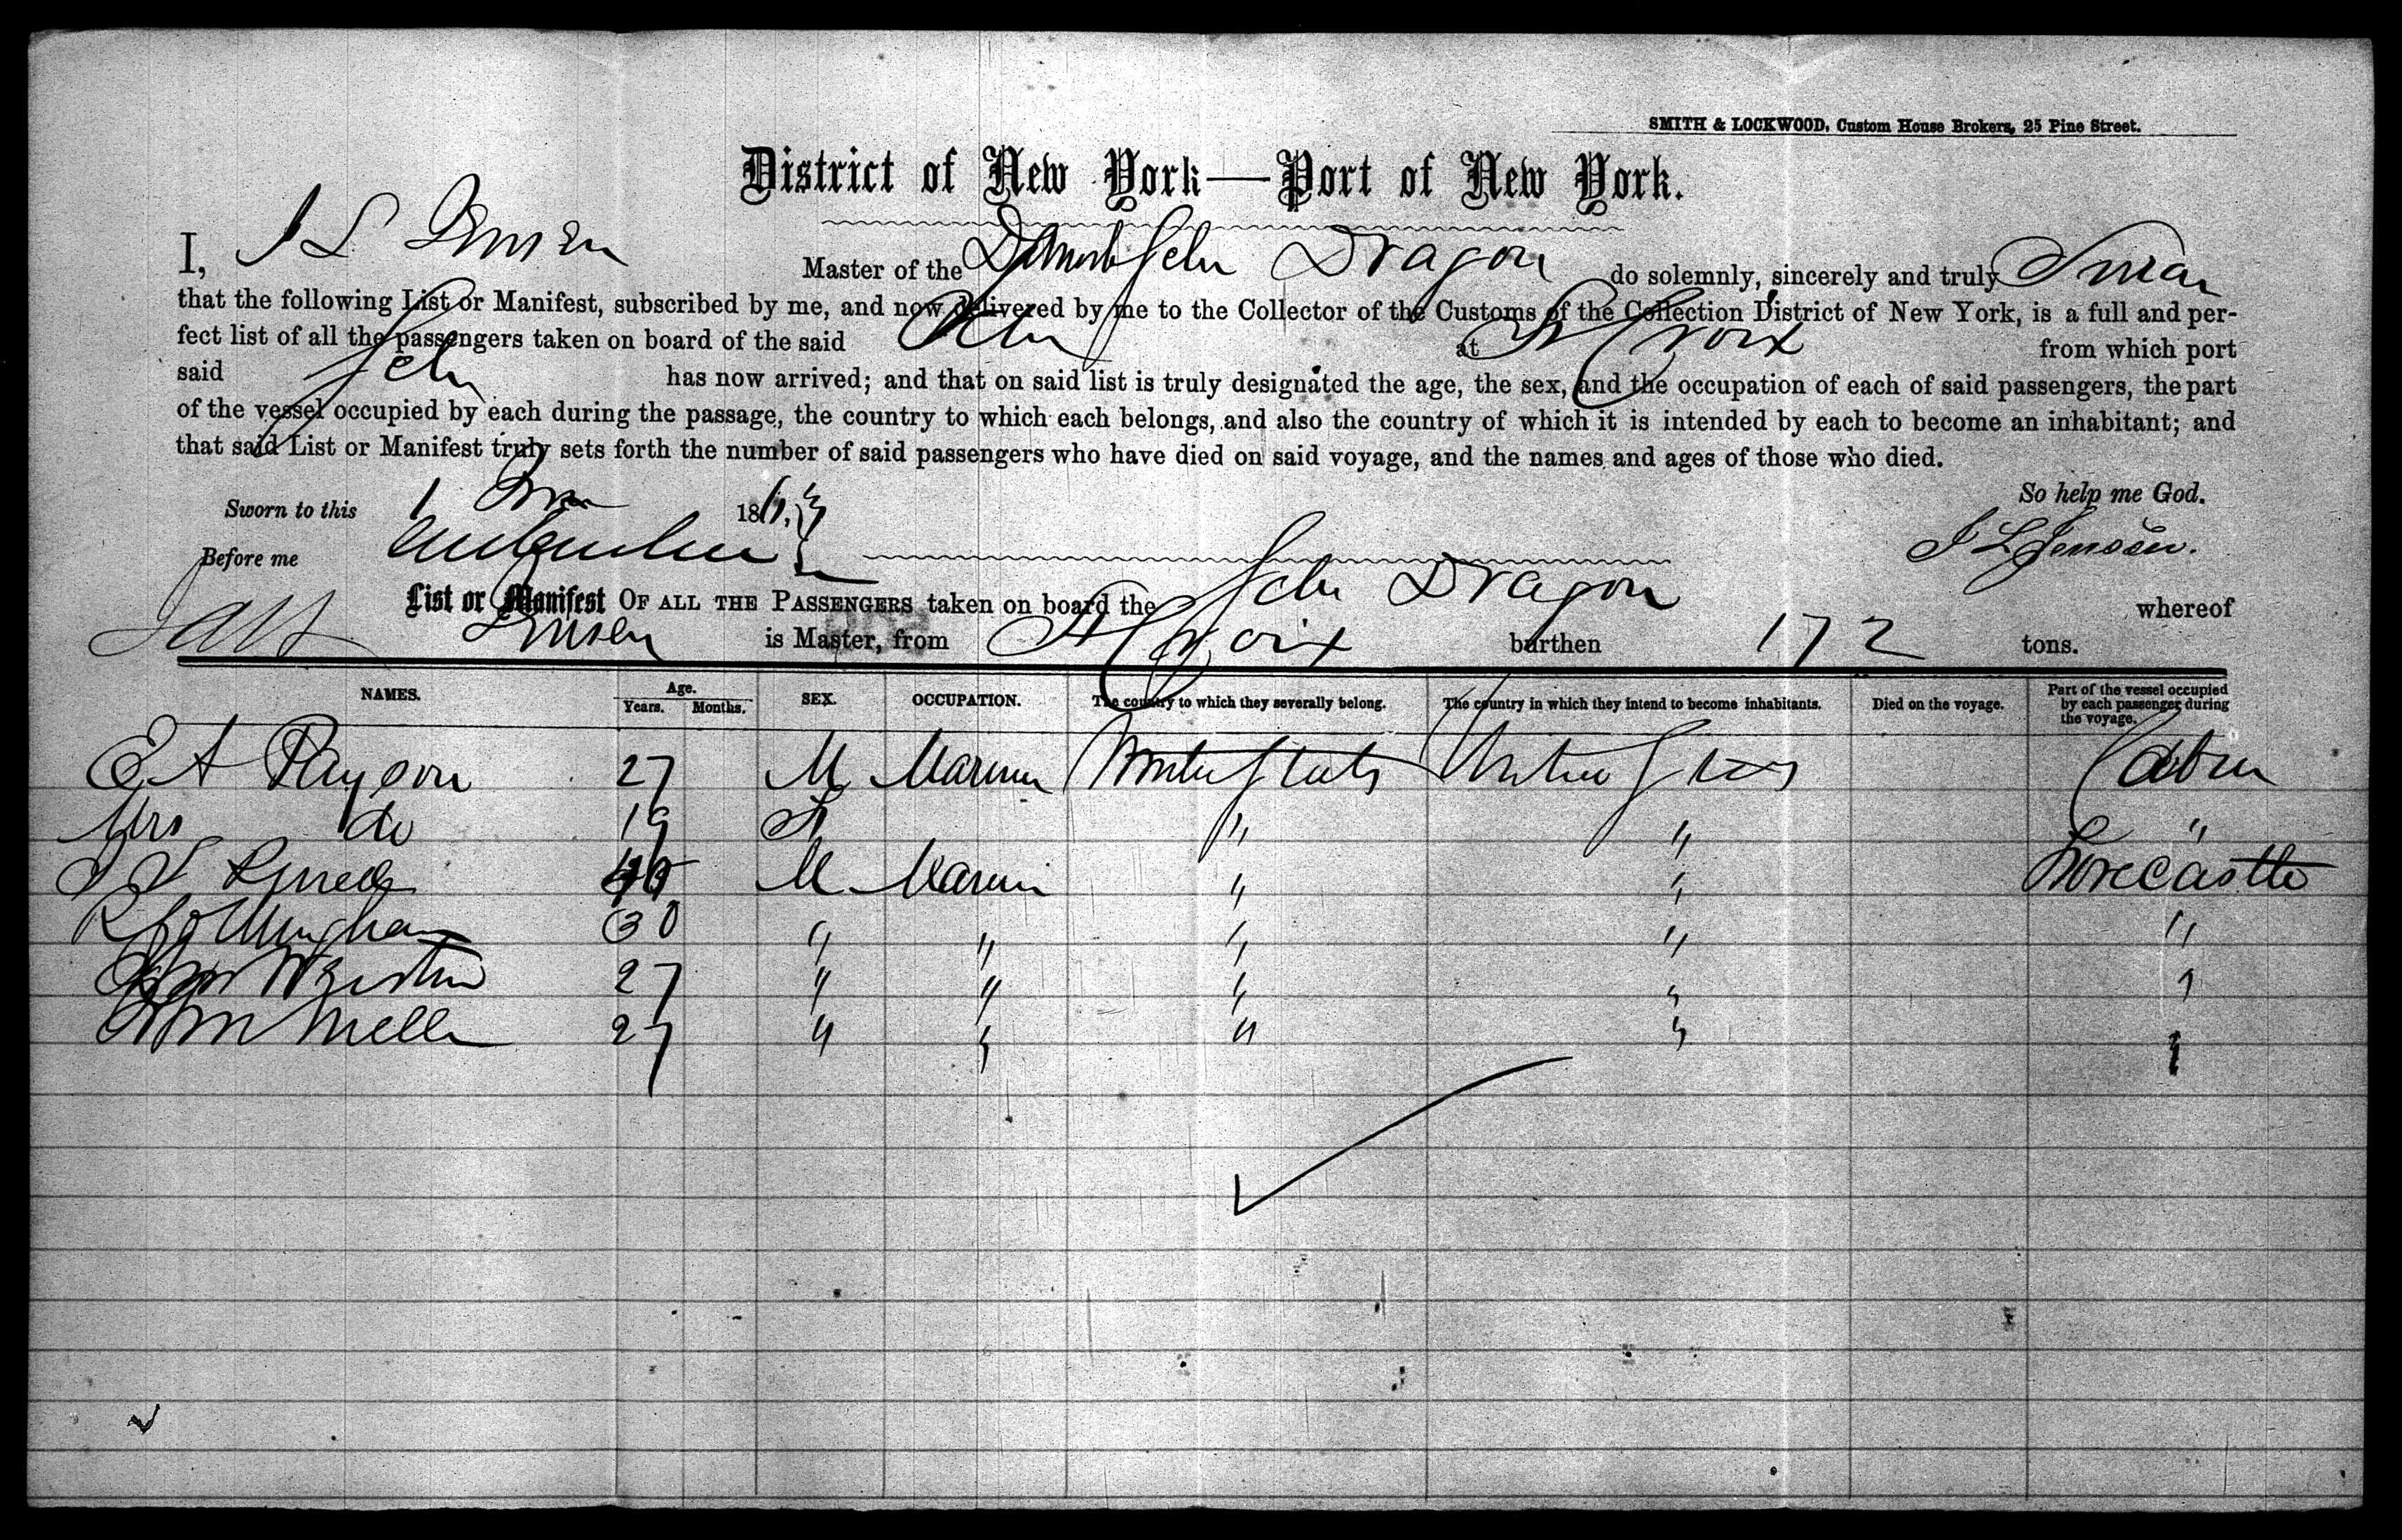 SMITH & LOCKWOOD, Custom House Brokers, 25 Pine Street.
District of New York—Port of New York.
I, J L Jensen Master of the Schr Dragon do solemnly, sincerely and truly Swear
that the following List or Manifest, subscribed by me, and now delivered by me to the Collector of the Customs of the Collection District of New York, is a full and per-
fect list of all the passengers taken on board of the said Schr at St Croix from which port
said Schr has now arrived; and that on said list is truly designated the age, the sex, and the occupation of each of said passengers, the part
of the vessel occupied by each during the passage, the country to which each belongs, and also the country of which it is intended by each to become an inhabitant; and
that said List or Manifest truly sets forth the number of said passengers who have died on said voyage, and the names and ages of those who died.
So help me God.
Sworn to this 1 186
Before me
J L Jensen.
List or Manifest OF ALL THE PASSENGERS taken on board the Schr Dragon whereof
Jensen is Master, from St Croix burthen 172 tons.
NAMES. Age. Years. Months. SEX. OCCUPATION. The country to which they severally belong. The country in which they intend to become inhabitants. Died on the voyage. Part of the vessel occupied by each passenger during the voyage.
E A Payson 27 M Mariner United States United States Cabin
Mrs do 19 F " " "
M Mariner " " Forecastle
R 30 " " " " "
27 " " " " "
Wm 27 " " " " "